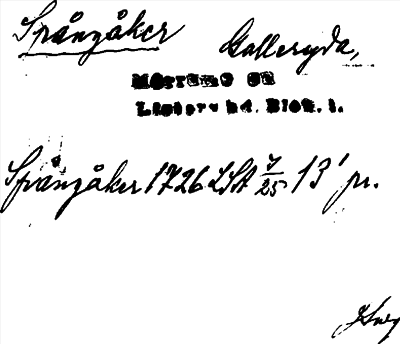 Språngåker Galleryda,
Mörrums sn
Listers hd. Blek. l.
Språngåker 1726 LSA 7/25 13' jr.